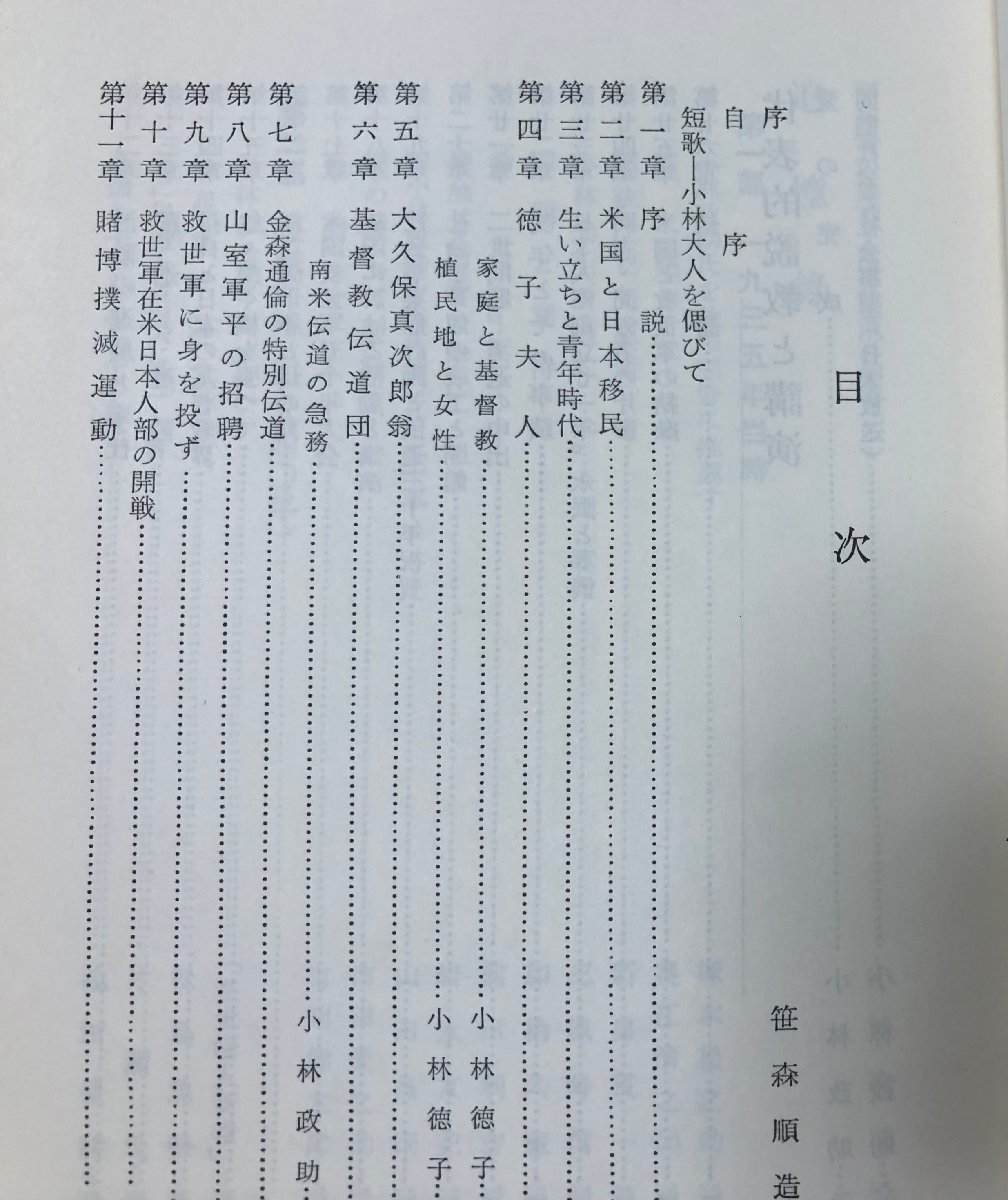 目次
序 笹森順造
自序
短歌―小林大人を偲びて
第一章 序説
第二章 米国と日本移民
第三章 生い立ちと青年時代
第四章 徳子夫人
家庭と基督教 小林徳子
植民地と女性 小林徳子
第五章 大久保真次郎翁
第六章 基督教伝道団
南米伝道の急務 小林政助
第七章 金森通倫の特別伝道
第八章 山室軍平の招聘
第九章 救世軍に身を投ず
第十章 救世軍在米日本人部の開戦
第十一章 賭博撲滅運動